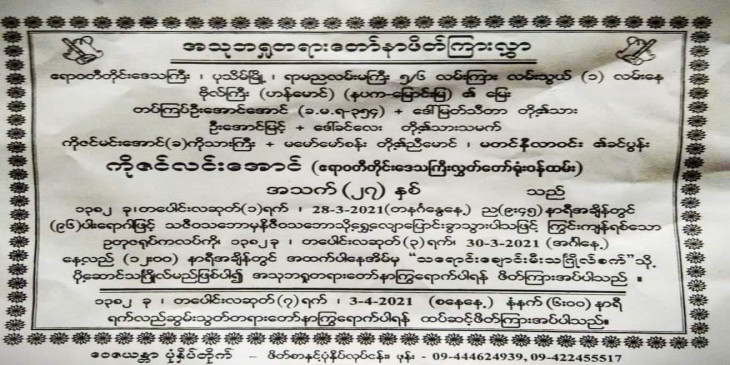 အသုဘရှုတရားတော်နာဖိတ်ကြားလွှာ
ဧရာဝတီတိုင်းဒေသကြီး ၊ ပုသိမ်မြို့ ၊ ရာမညလမ်းမကြီး ၅/၆ လမ်းကြား လမ်းသွယ် (၁) လမ်းနေ
ဗိုလ်ကြီး (ဟန်မောင်) (နပက-မြောင်းမြ) ၏ မြေး
တပ်ကြပ်ဦးအောင်အောင် (ခ.မ.ရ-၃၅၄) + ဒေါ်မြတ်သီတာ တို့၏သား
ဦးအောင်မြင့် + ဒေါ်ခင်လေး တို့၏သားသမက်
ကိုဇင်မင်းအောင်(ခ)ကိုသားကြီး + မမော်မော်စန်း တို့၏ညီမောင် ၊ မတင်နီလာဝင်း ၏ခင်ပွန်း
ကိုဇင်လင်းအောင် (ဧရာဝတီတိုင်းဒေသကြီးလွှတ်တော်ရုံးဝန်ထမ်း)
အသက် (၂၇) နှစ် သည်
၁၃၈၂ ခု၊တပေါင်းလဆုတ်(၁)ရက် ၊ 28-3-2021(တနင်္ဂနွေနေ့) ည(၉း၄၅)နာရီအချိန်တွင်
(၉၆)ပါးရောဂါဖြင့် သဇီဝသဘောမှနိဇီဝသဘောသို့ရွှေ့လျောပြောင်းခွာသွားပါသဖြင့် ကြွင်းကျန်ရစ်သော
ဥတုဇရုပ်ကလပ်ကို ၁၃၈၂ခု ၊ တပေါင်းလဆုတ်(၃)ရက်၊ 30-3-2021 (အင်္ဂါနေ့)
နေ့လည် (၁၂း၀၀) နာရီအချိန်တွင် အထက်ပါနေအိမ်မှ "သရောင်းချောင်းမီးသင်္ဂြိုလ်စက်"သို့
ပို့ဆောင်သင်္ဂြိုလ်မည်ဖြစ်ပါ၍ အသုဘရှုတရားတော်နာကြွရောက်ပါရန် ဖိတ်ကြားအပ်ပါသည် ။
၁၃၈၂ ခု ၊ တပေါင်းလဆုတ် (၇) ရက် ၊ 3-4-2021 (စနေနေ့) နံနက် (၆း၀၀) နာရီ
ရက်လည်ဆွမ်းသွတ်တရားတော်နာကြွရောက်ပါရန် ထပ်ဆင့်ဖိတ်ကြားအပ်ပါသည်။
ဝေဇယန္တာ ပုံနှိပ်တိုက် - ဖိတ်စာနှင့်ပုံနှိပ်လုပ်ငန်း။ ဖုန်း - 09-444624939, 09-422455517